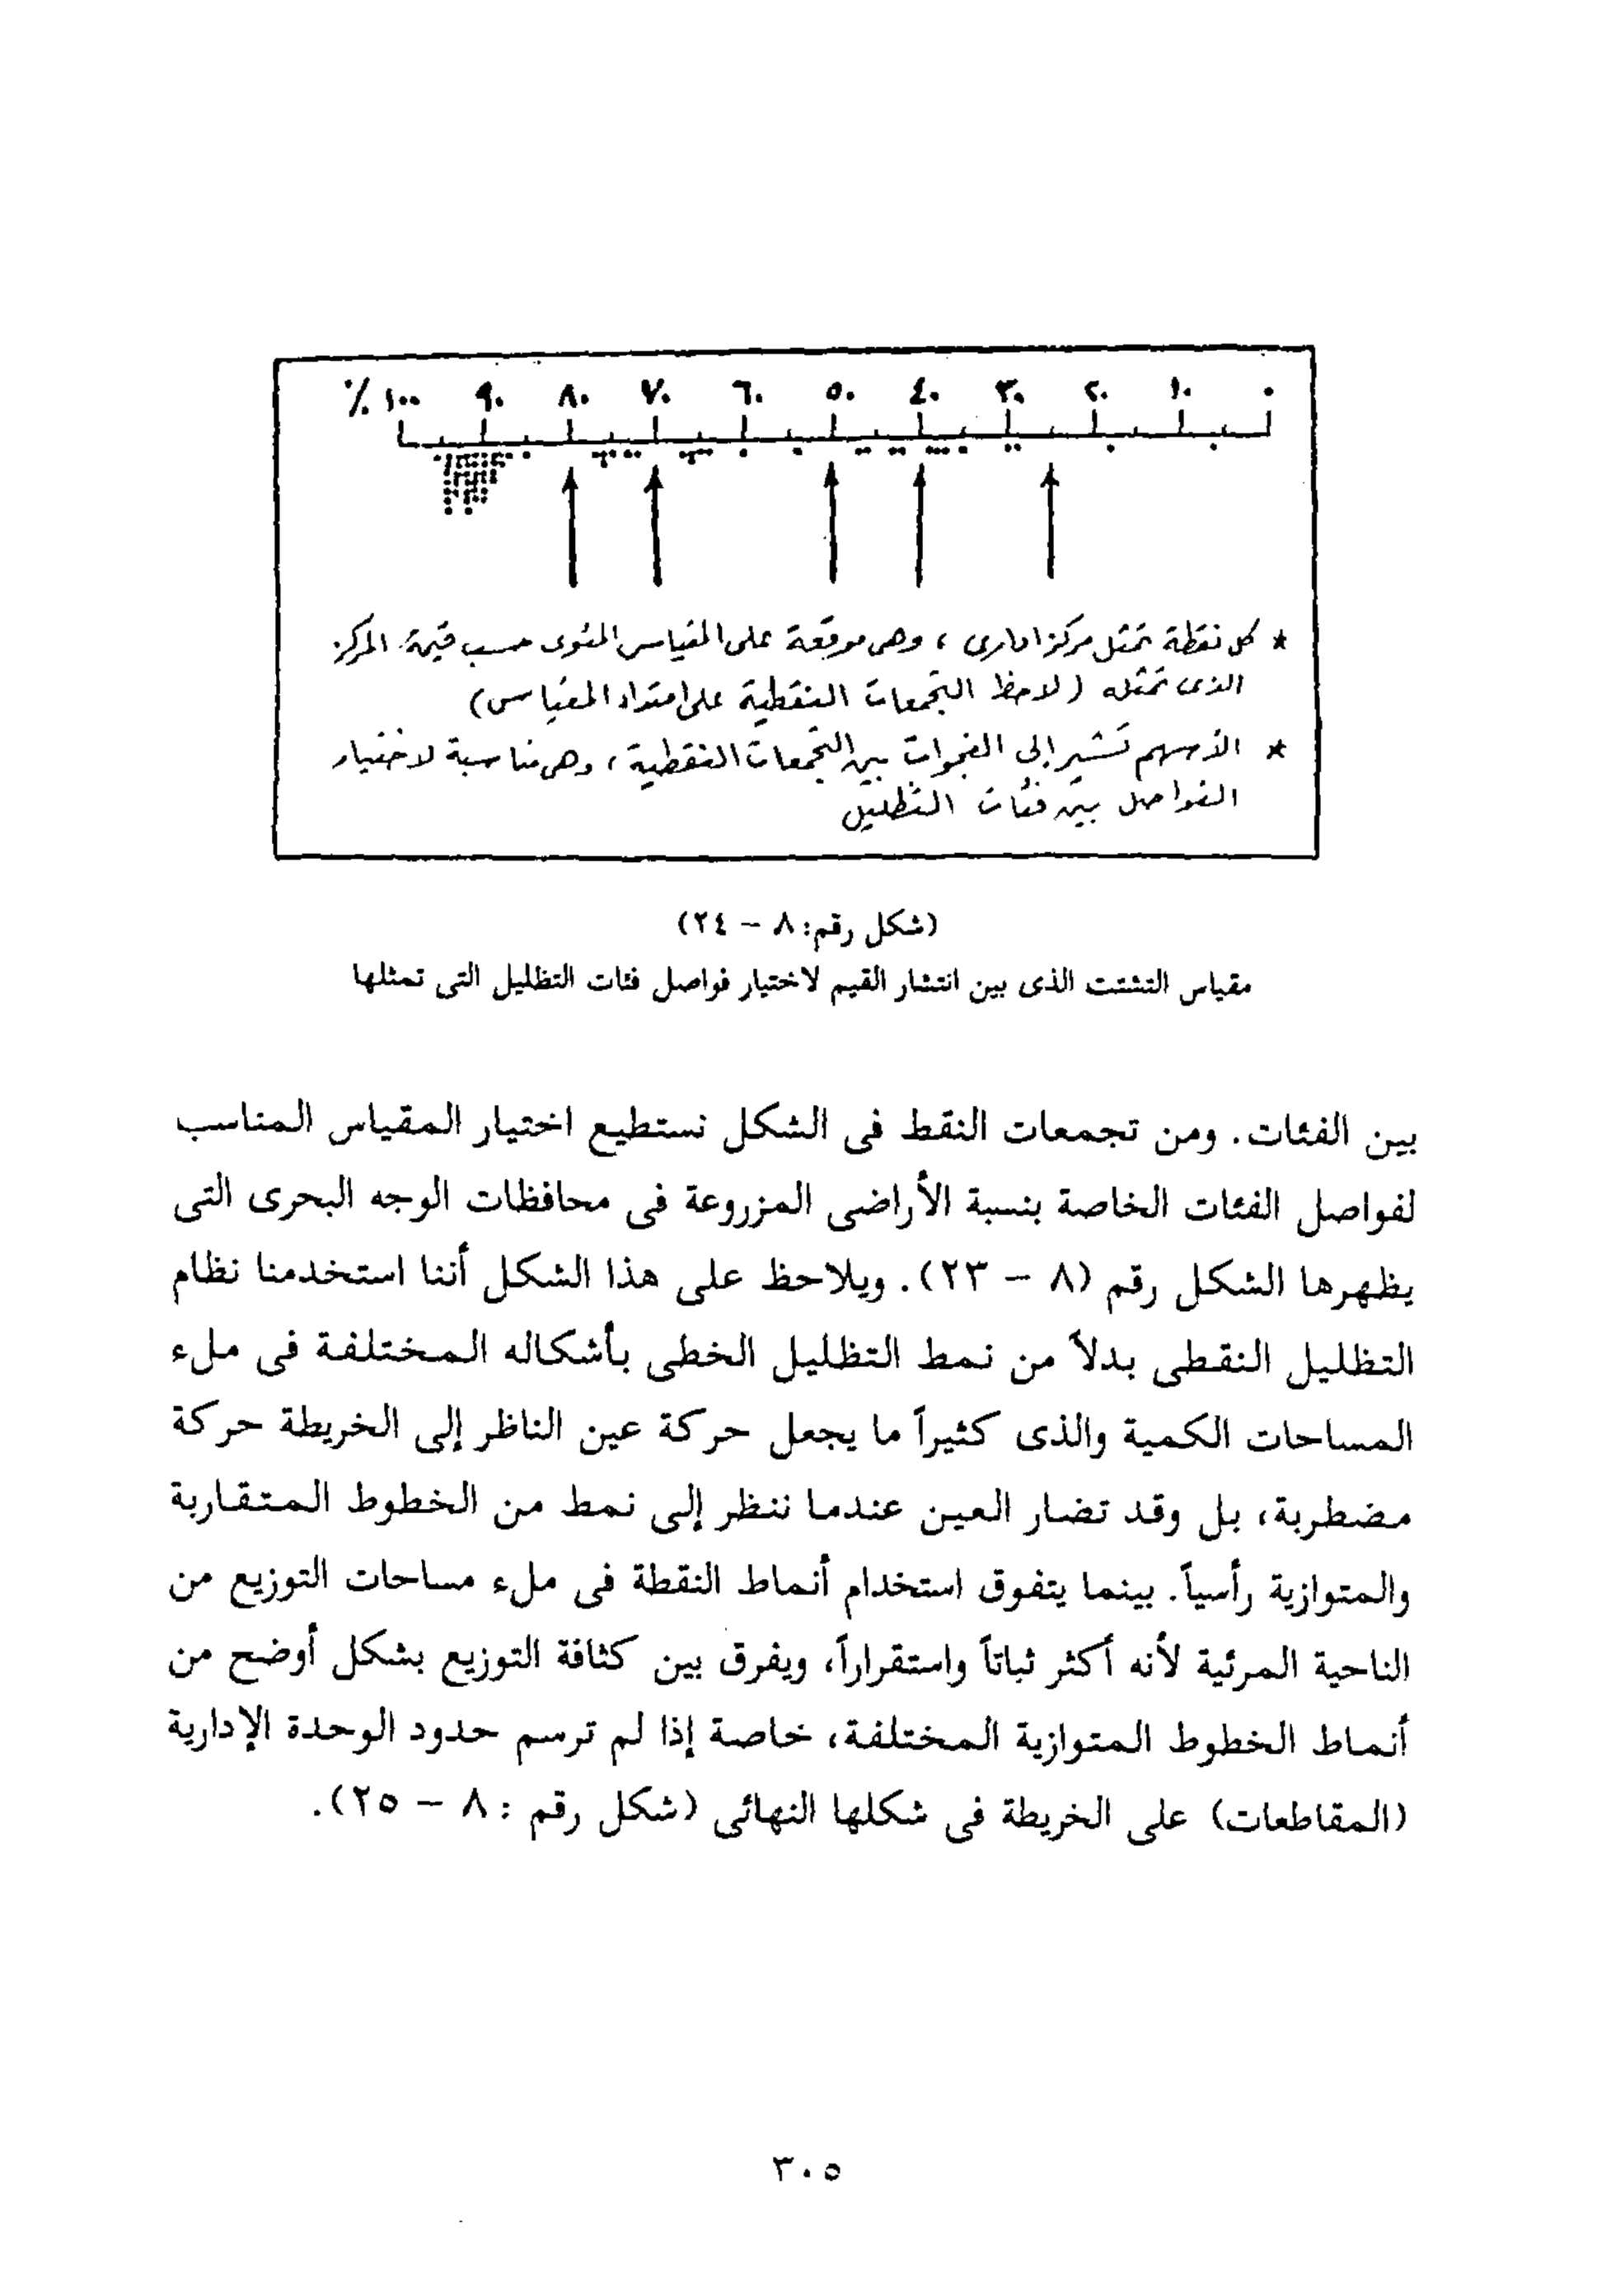 ٠ ١٠ ٢٠ ٣٠ ٤٠ ٥٠ ٦٠ ٧٠ ٨٠ ٩٠ ١٠٠ ٪
* كل نقطة تمثل مركز ادارى ، وهى موقعة على المقياس المئوى حسب قيمة المركز
الذى تمثله (لاحظ التجمعات النقطية على امتداد المقياس)
* الأسهم تشير إلى الفجوات بين التجمعات النقطية ، وهى مناسبة لاختيار
الفواصل بين فئات التظليل
(شكل رقم: ٨ – ٢٤)
مقياس التشتت الذى بين انتشار القيم لاختيار فواصل فئات التظليل التى تمثلها
بين الفئات. ومن تجمعات النقط فى الشكل نستطيع اختيار المقياس المناسب
لفواصل الفئات الخاصة بنسبة الأراضى المزروعة فى محافظات الوجه البحرى التى
يظهرها الشكل رقم (٨ – ٢٣). ويلاحظ على هذا الشكل أننا استخدمنا نظام
التظليل النقطى بدلاً من نمط التظليل الخطى بأشكاله المختلفة فى ملء
المساحات الكمية والذى كثيراً ما يجعل حركة عين الناظر إلى الخريطة حركة
مضطربة، بل وقد تضار العين عندما ننظر إلى نمط من الخطوط المتقاربة
والمتوازية رأسياً. بينما يتفوق استخدام أنماط النقطة فى ملء مساحات التوزيع من
الناحية المرئية لأنه أكثر ثباتاً واستقراراً، ويفرق بين كثافة التوزيع بشكل أوضح من
أنماط الخطوط المتوازية المختلفة، خاصة إذا لم ترسم حدود الوحدة الإدارية
(المقاطعات) على الخريطة فى شكلها النهائى (شكل رقم : ٨ – ٢٥).
٣٠٥